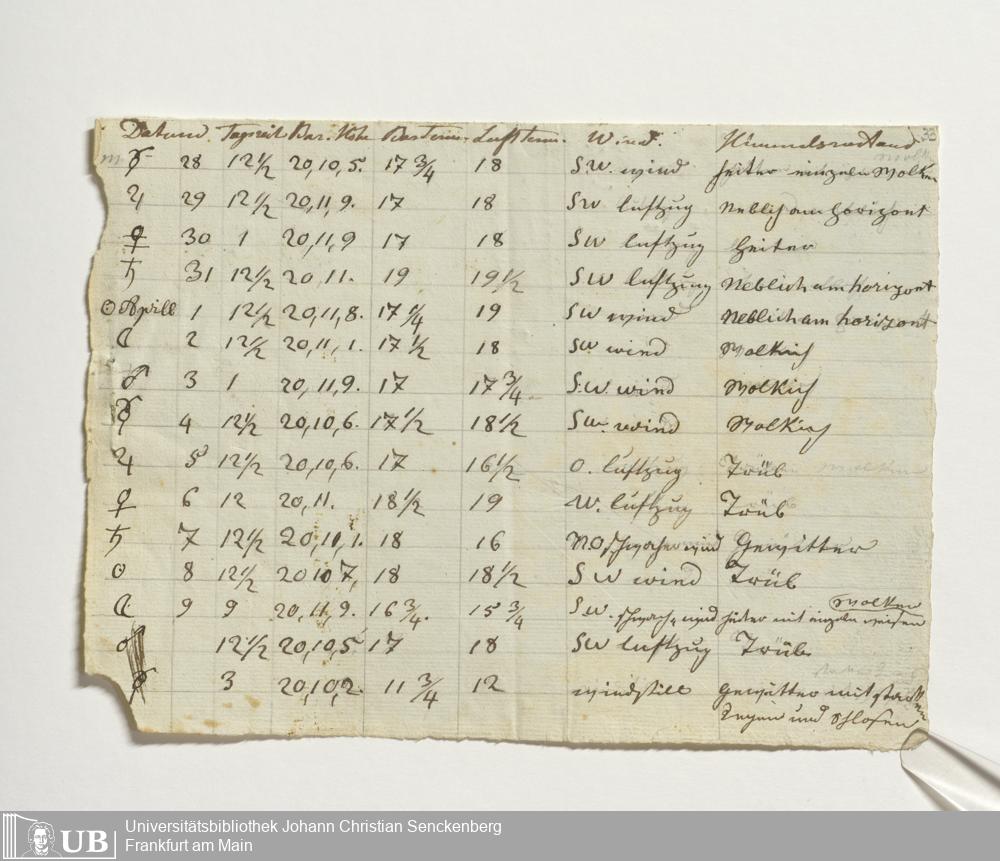 Datum. Tagszeit Bar. Höhe Bar Term. Luft Term. Wind. Himmelszustand 33
☿ 28 12½ 20,10,5. 17¾ 18 S.W. wind heiter einzeln Wolken
♃ 29 12½ 20,11,9. 17 18 SW luftzug Neblich am horizont
♀ 30 1 20,11,9 17 18 SW luftzug heiter
♄ 31 12½ 20,11. 19 19½ SW luftzug Neblich am horizont
☉ Aprill 1 12½ 20,11,8. 17¼ 19 SW wind Neblich am horizont
☾ 2 12½ 20,11,1. 17½ 18 SW wind Wolkich
♂ 3 1 20,11,9. 17 17¾ S.W. wind Wolkich
☿ 4 12½ 20,10,6. 17½ 18½ SW. wind Wolkich
♃ 5 12½ 20,10,6. 17 16½ O. luftzug Trüb
♀ 6 12 20,11. 18½ 19 W. luftzug Trüb
♄ 7 12½ 20,11,1. 18 16 NO schwacher wind Gewitter
☉ 8 12½ 20 10 7, 18 18½ SW wind Trüb
Wolken
☾ 9 9 20,11,9. 16¾. 15¾ SW. schwach. wind heiter mit einzeln weisen
♂ 12½ 20,10,5 17 18 SW luftzug Trüb
3 20,10,2. 11¾ 12 windstill Gewitter mit starken
Regen und Schlosen
UB
Universitätsbibliothek Johann Christian Senckenberg
Frankfurt am Main